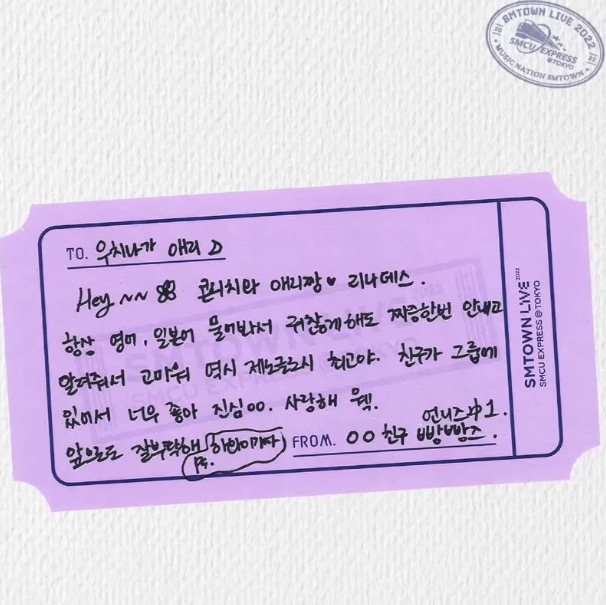 SMTOWN LIVE 2022
SMCU EXPRESS
@TOKYO
MUSIC NATION SMTOWN
TO. 우치나가 애리 D
Hey ~~ 콘니치와 애리짱 ♥ 리나데스.
항상 영어, 일본어 물어봐서 귀찮게해도 짜증한번 안내고
알려줘서 고마워 역시 제노글로시 최고야. 친구가 그룹에
있어서 너무 좋아 진심 ㅇㅇ. 사랑해 웩.
앞으로도 잘부탁해
언니즈中1.
FROM. ㅇㅇ 친구 빠방빠방즈.
SMTOWN LIVE 2022
SMCU EXPRESS @TOKYO